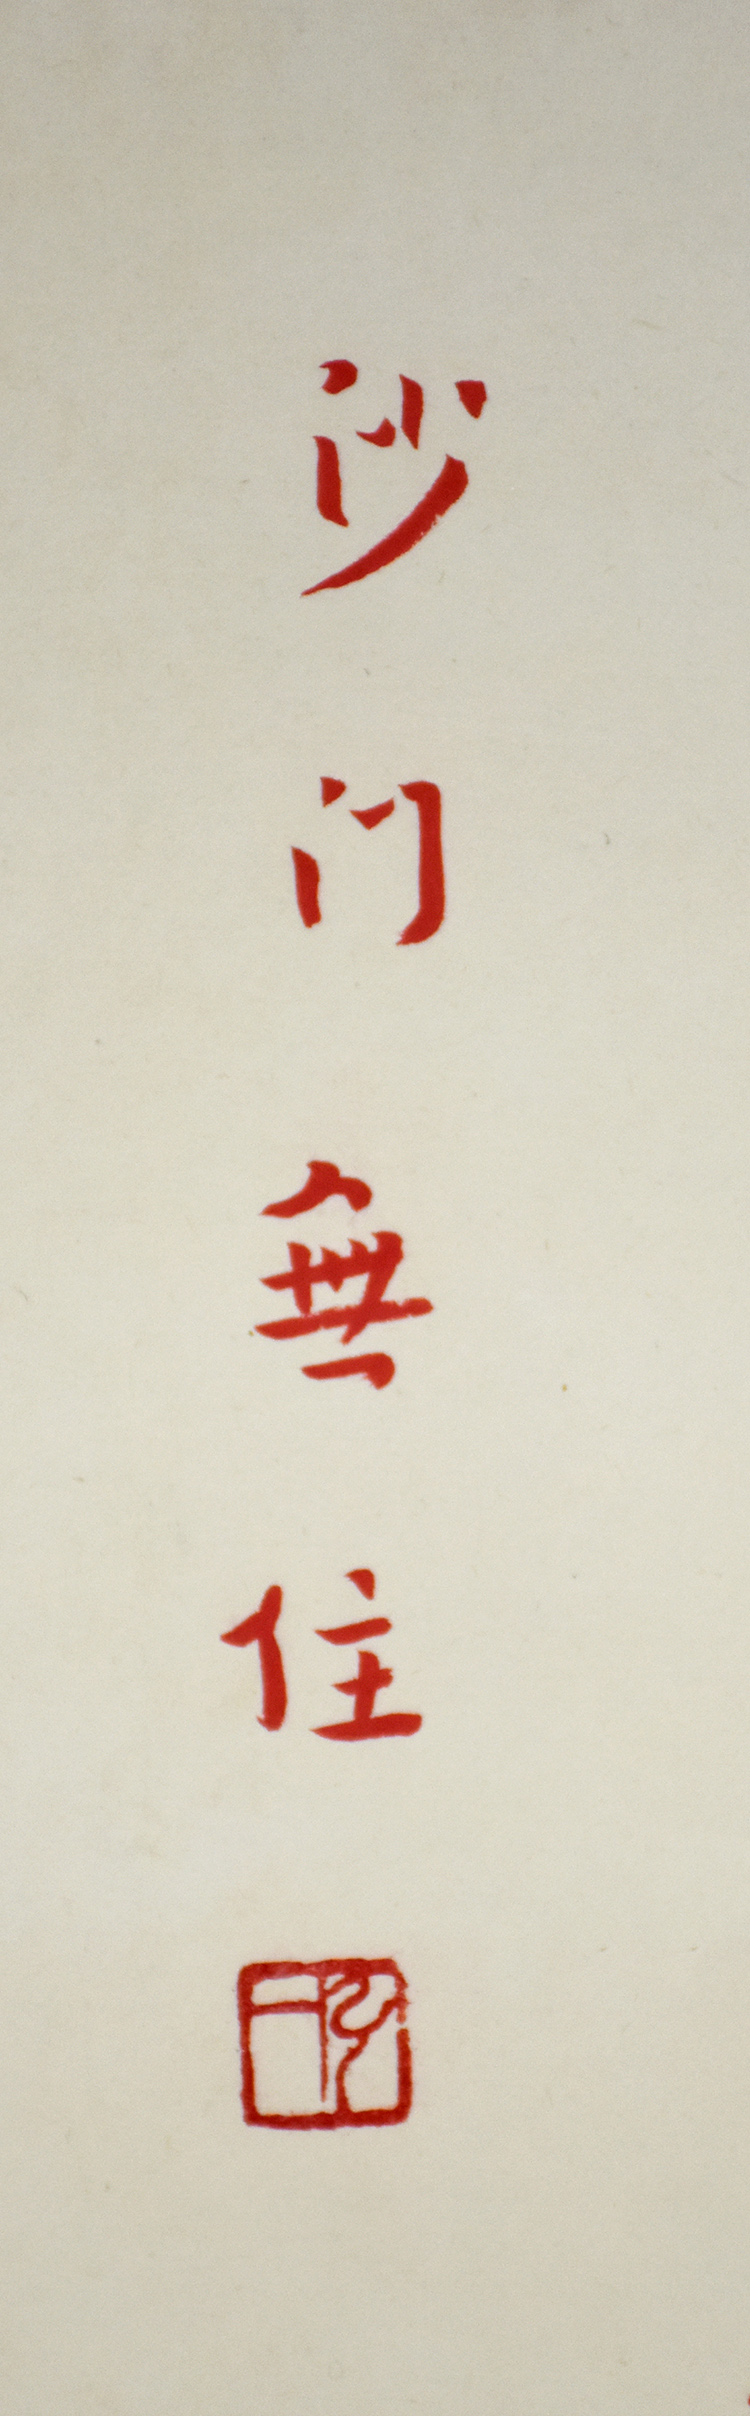 沙门無住